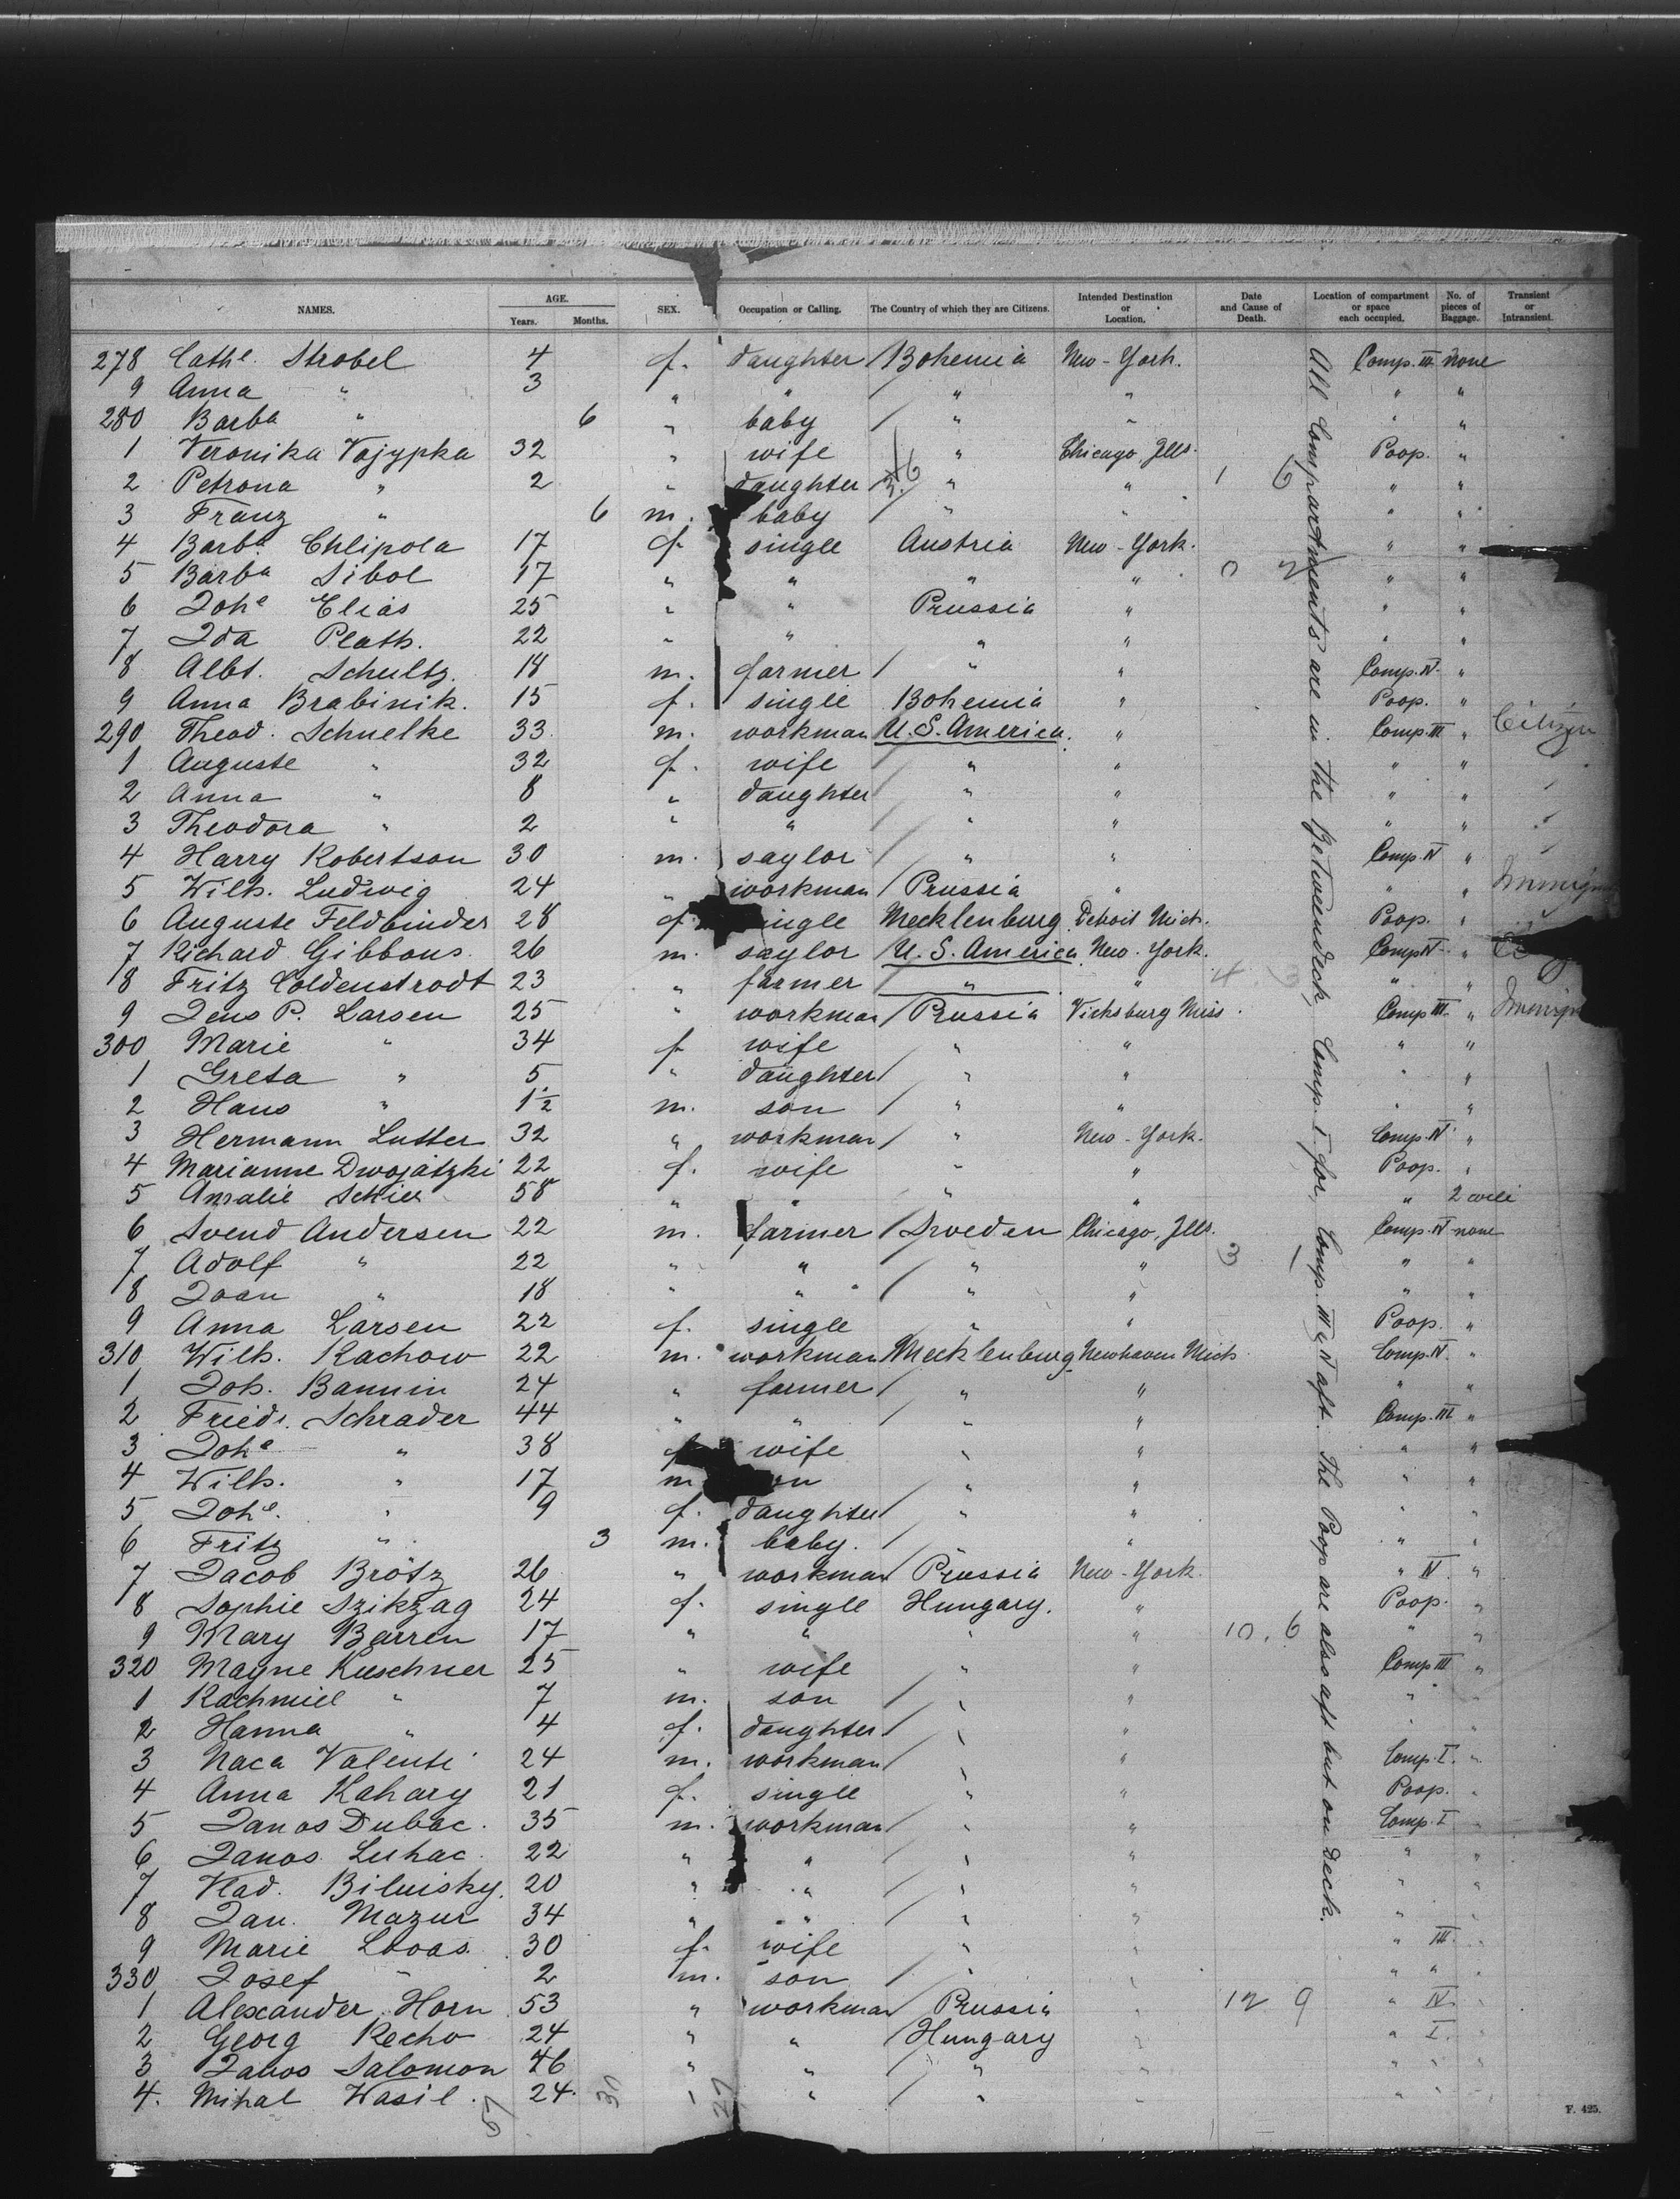 NAMES. AGE. Years. Months. SEX. Occupation or Calling. The Country of which they are Citizens. Intended Destination or Location. Date and Cause of Death. Location of compartment or space each occupied. No. of pieces of Baggage. Transient or Intransient.
278 Cathe. Strobel 4 f. daughter Bohemia New-York. Comp. III none
9 Anna " 3 " " " " " "
280 Barba " 6 " baby " " " "
1 Veronika Vojypka 32 " wife " Chicago, Ills. Poop. "
2 Petrona " 2 " daughter " " 1 6 " "
3 Franz " 6 m. baby " " " "
4 Barba Chlipola 17 f. single Austria New-York. " "
5 Barba Sibol 17 " " " " " "
6 Johe Elias 25 " " Prussia " " "
7 Ida Plath. 22 " " " " " "
8 Albt. Schultz. 18 m. farmer " " Comp. IV. "
9 Anna Brabinik. 15 f. single Bohemia " Poop. "
290 Theod. Schuelke 33 m. workman U.S. America. " Comp. III " Citizen
1 Auguste " 32 f. wife " " " "
2 Anna " 8 " daughter " " " "
3 Theodora " 2 " " " " " "
4 Harry Robertson 30 m. saylor " " Comp. IV "
5 Wilh. Ludwig 24 " workman Prussia " " "
6 Auguste Feldbinder 28 f. single Mecklenburg Detroit Mich. Poop. "
7 Richard Gibbons 26 m. saylor U.S. America New-York. Comp IV "
8 Fritz Coldenstrodt 23 " farmer " " " "
9 Jens P. Larsen 25 " workman Prussia Vicksburg Miss. Comp III. "
300 Marie " 34 f. wife " " " "
1 Greta " 5 " daughter " " " "
2 Hans " 1½ m. son " " " "
3 Hermann Lutter 32 " workman " New-York. Comp. IV "
4 Marianne Dwojatzki 22 f. wife " " Poop. "
5 Amalie 58 " " " " " 2
6 Svend Andersen 22 m. farmer Sweden Chicago, Ills. Comp. IV none
7 Adolf " 22 " " " " 3 1 " "
8 Joan " 18 " " " " " "
9 Anna Larsen 22 f. single " " Poop. "
310 Wilh. Rachow 22 m. workman Mecklenburg Newhaven Mich. Comp. IV. "
1 Joh. Bannin 24 " farmer " " " "
2 Friedr. Schrader 44 " " " " Comp. III "
3 Johe " 38 f wife " " " "
4 Wilh. " 17 m " " " "
5 Johe. " 9 f. daughter " " " "
6 Fritz " 3 m. baby. " " " "
7 Jacob Brötz 26 " workman Prussia New-York. " IV. "
8 Sophie Szikzag 24 f. single Hungary. " Poop. "
9 Mary Barren 17 " " " " 10. 6 " "
320 Mayne Kuschner 25 " wife " " Comp III "
1 Rachmiel " 7 m. son " " " "
2 Hanna " 4 f. daughter " " " "
3 Naca Valenti 24 m. workman " " Comp. I. "
4 Anna Kahary 21 f. single " " Poop. "
5 Janos Dubac. 35 m. workman " " Comp. I "
6 Janos Luhac. 22 " " " " " "
7 Vlad. Biluisky. 20 " " " " " "
8 Jan. Mazur 34 " " " " " "
9 Marie Lovas. 30 f. wife " " " III. "
330 Josef " 2 m. son " " " " "
1 Alexander Horn 53 " workman Prussia " 12 9 " IV. "
2 Georg Recho 24 " " Hungary " " I. "
3 Janos Salomon 46 " " " " " "
4. Mihal Wasil. 24. " " " " " "
All Compartments are in the Betweendeck, Comp. I for, Comp. III & IV aft. The Poop are also aft but on Deck.
F. 425.